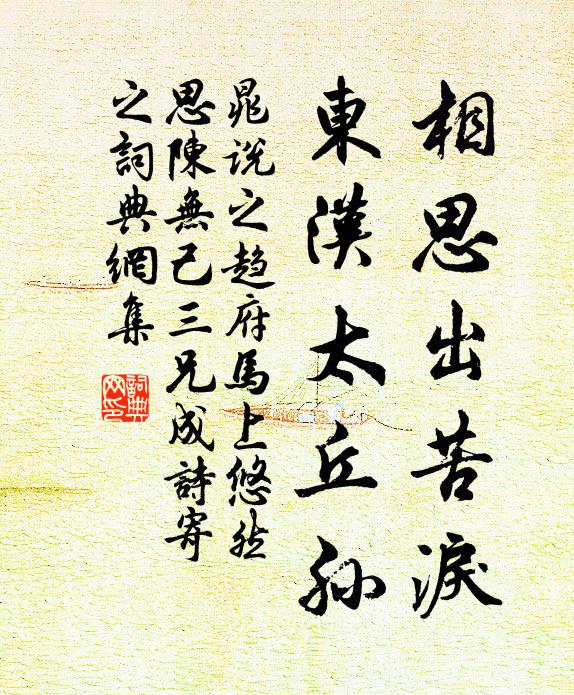 相思出苦淚
東漢太丘孫
晁說之趨府馬上悠然
思陳無己三兄成詩寄
之詞典網集
詞典網印